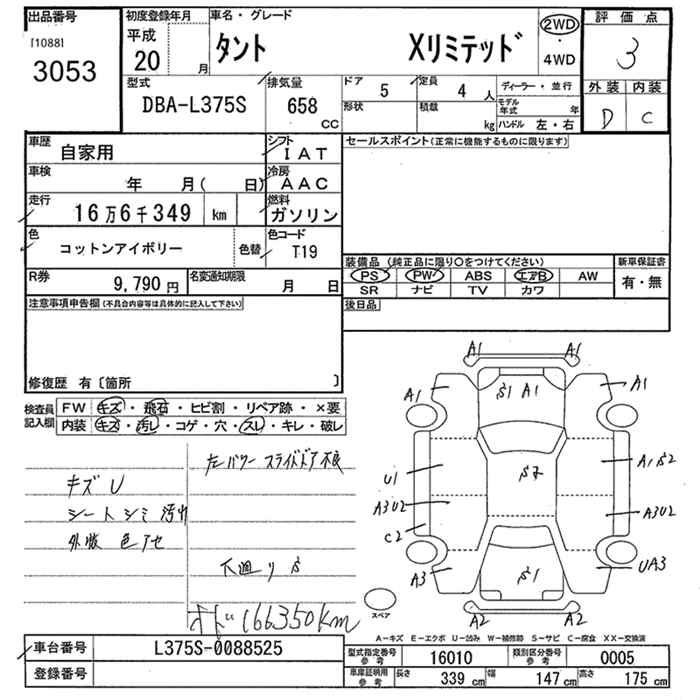 出品番号
[1088]
3053
初度登録年月
平成
20
月
車名・グレード
タント Xリミテッド
2WD
・
4WD
評価点
3
外装 内装
D C
型式
DBA-L375S
排気量
658
CC
ドア
5
定員
4 人
形状
積載
kg
ディーラー・並行
モデル年式
年
ハンドル 左・右
車歴
自家用
シフト
IAT
車検
年 月( 日)
冷房
AAC
走行
16万6千349 km
燃料
ガソリン
色
コットンアイボリー
色替
色コード
T19
R券
9,790 円
名変通知期限
月 日
セールスポイント(正常に機能するものに限ります)
装備品 (純正品に限り○をつけてください)
新車保証書
PS PW ABS エアB AW
有・無
SR ナビ TV カワ
後日品
注意事項申告欄(不具合内容等は具体的に記入して下さい)
修復歴 有〔箇所 〕
検査員記入欄
FW キズ・飛石・ヒビ割・リペア跡・×要
内装 キズ・汚レ・コゲ・穴・スレ・キレ・破レ
キズ U
シートシミ 汚れ
外販 色アセ
左パワースライドドア不良
下廻りS
メーター 166350km
A1 A1
A1 S1 A1 A1
U1 S2 A1 S2
A3U2 A3U2
C2
A3 S1 UA3
A2 A2
スペア
A-キズ E-エクボ U-凹み W-補修跡 S-サビ C-腐食 XX-交換済
車台番号
L375S-0088525
登録番号
型式指定番号
参考
16010
類別区分番号
参考
0005
車庫証明用
参考
長さ
339 cm
幅
147 cm
高さ
175 cm